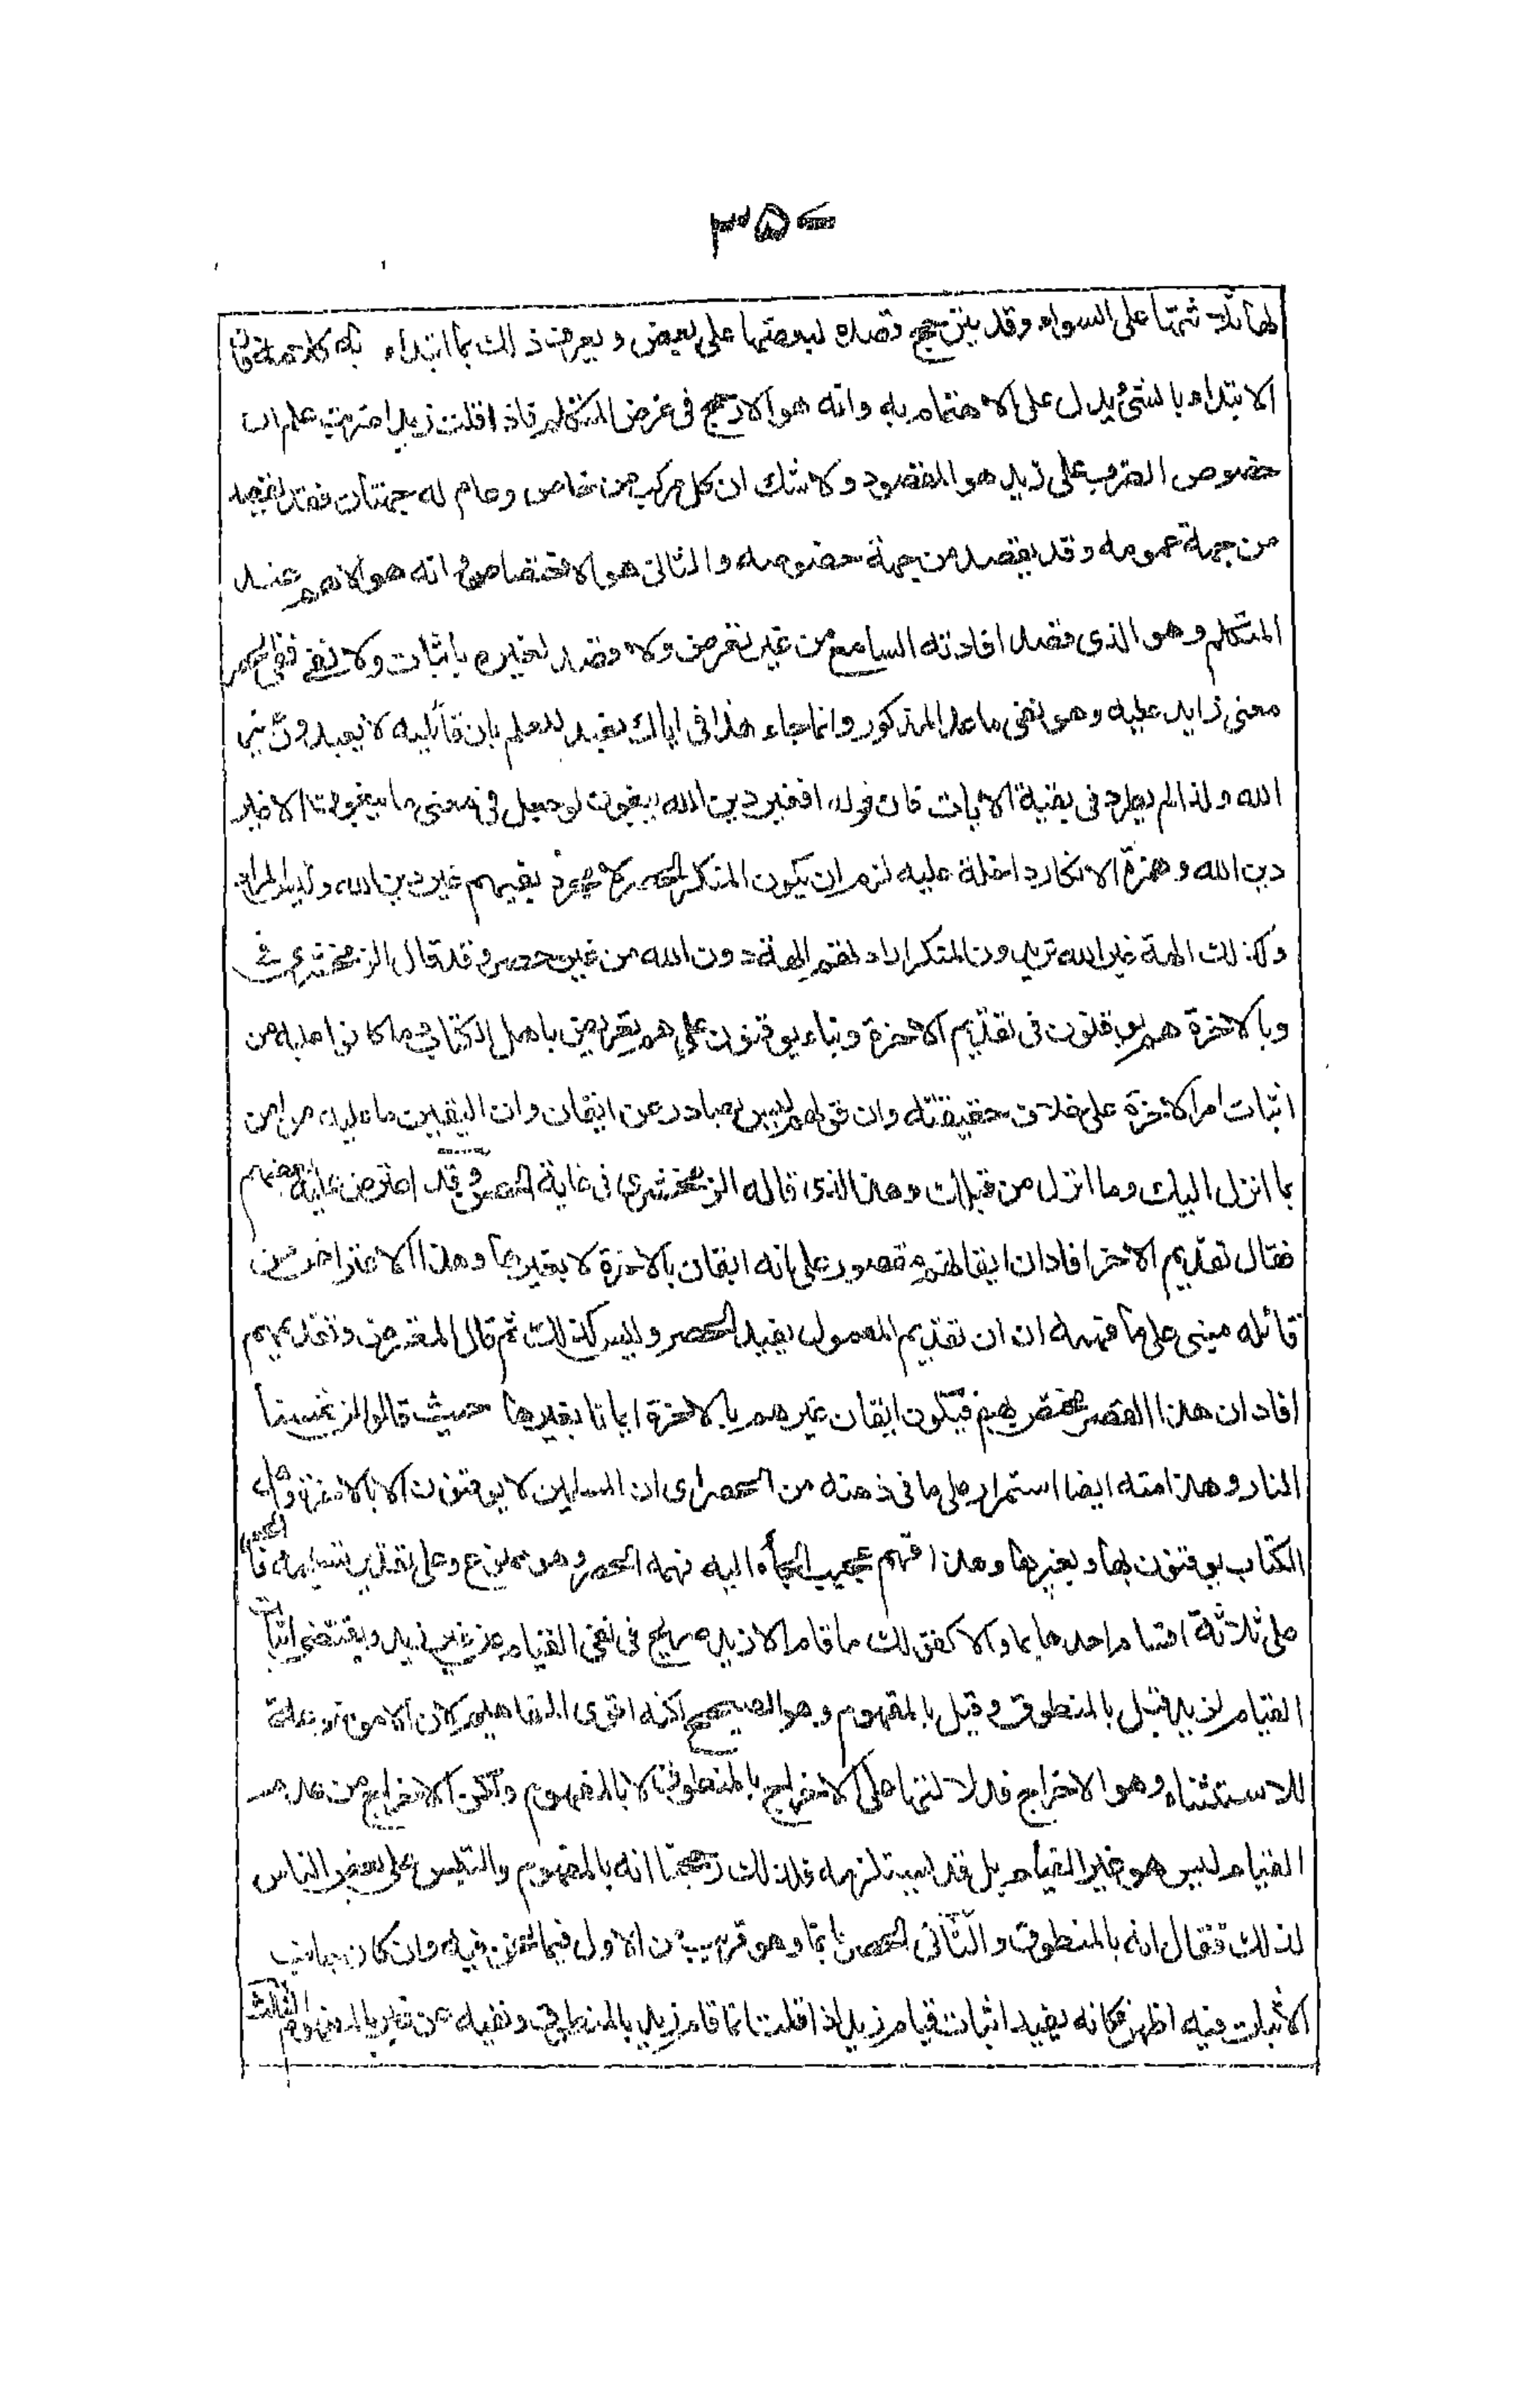 ٣٥٠
لها ثلاثتها على السواء وقد يترجح قصده لبعضها على بعض ويعرف ذلك بما ابتداء به كلامه فان
الابتداء بالشئ يدل على الاهتمام به وانه هو الارجح فى غرض المتكلم فاذا قلت زيدا ضربت علم ان
خصوص الضرب على زيد هو المقصود ولا شك ان كل مركب من خاص وعام له جهتان فقد يقصد
من جهة عمومه وقد يقصد من جهة خصوصه والثانى هو الاختصاص وانه هو الاهم عند
المتكلم وهو الذى قصد افادته السامع من غير تعرض ولا قصد لغيره باثبات ولا نفى ففى الحصر
معنى زايد عليه وهو نفى ما عدا المذكور وانما جاء هذا فى اياك نعبد للعلم بان قائليه لا يعبدون غير
الله ولذا لم يطرد فى بقية الايات فان قوله افغير دين الله يبغون لو جعل فى معنى ما يبغون الا غير
دين الله وهمزة الانكار داخلة عليه لزم ان يكون المنكر الحصر لا مجرد بغيهم غير دين الله وليس المراد
وكذلك الهة غير الله تريدون المنكر ارادتهم الهة دون الله من غير حصر وقد قال الزمخشرى فى
وبالاخرة هم يوقنون فى تقديم الاخرة وبناء يوقنون على هم تعريض باهل الكتاب وما كانوا عليه من
اثبات امر الاخرة على خلاف حقيقته وان قولهم ليس بصادر عن ايقان وان اليقين ما عليه من امن
بما انزل اليك وما انزل من قبلك وهذا الذى قاله الزمخشرى فى غاية الحسن وقد اعترض عليه بعضهم
فقال تقديم الاخرة افاد ان ايقانهم مقصور على انه ايقان بالاخرة لا بغيرها وهذا الاعتراض من
قائله مبنى على ما فهمه ان ان تقديم المعمول يفيد الحصر وليس كذلك ثم قال المعترض وتقديم هم
افاد ان هذا القصر مختص بهم فيكون ايقان غيرهم بالاخرة ايمانا بغيرها حيث قالوا لن تمسنا
النار وهذا منه ايضا استمرار على ما فى ذهنه من الحصر اى ان المسلمين لا يوقنون الا بالاخرة واهل
الكتاب يوقنون بها وبغيرها وهذا فهم عجيب الجأه اليه فهمه الحصر وهو ممنوع وعلى تقدير تسليمه فالحصر
على ثلاثة اقسام احدها بما والا كقولك ما قام الا زيد صريح فى نفى القيام عن غير زيد ويقتضى اثبات
القيام لزيد قيل بالمنطوق وقيل بالمفهوم وهو الصحيح لكنه اقوى المفاهيم لان الا موضوعة
للاستثناء وهو الاخراج فدلالتها على الاخراج بالمنطوق لا بالمفهوم ولكن الاخراج من عدم
القيام ليس هو غير القيام بل قد يستلزمه فلذلك رجحنا انه بالمفهوم والتبس على بعض الناس
لذلك فقال انه بالمنطوق والثانى الحصر بانما وهو قريب من الاول فيما نحن فيه وان كان جانب
الاثبات فيه اظهر فكانه يفيد اثبات قيام زيد اذا قلت انما قام زيد بالمنطوق ونفيه عن غيره بالمفهوم الثالث